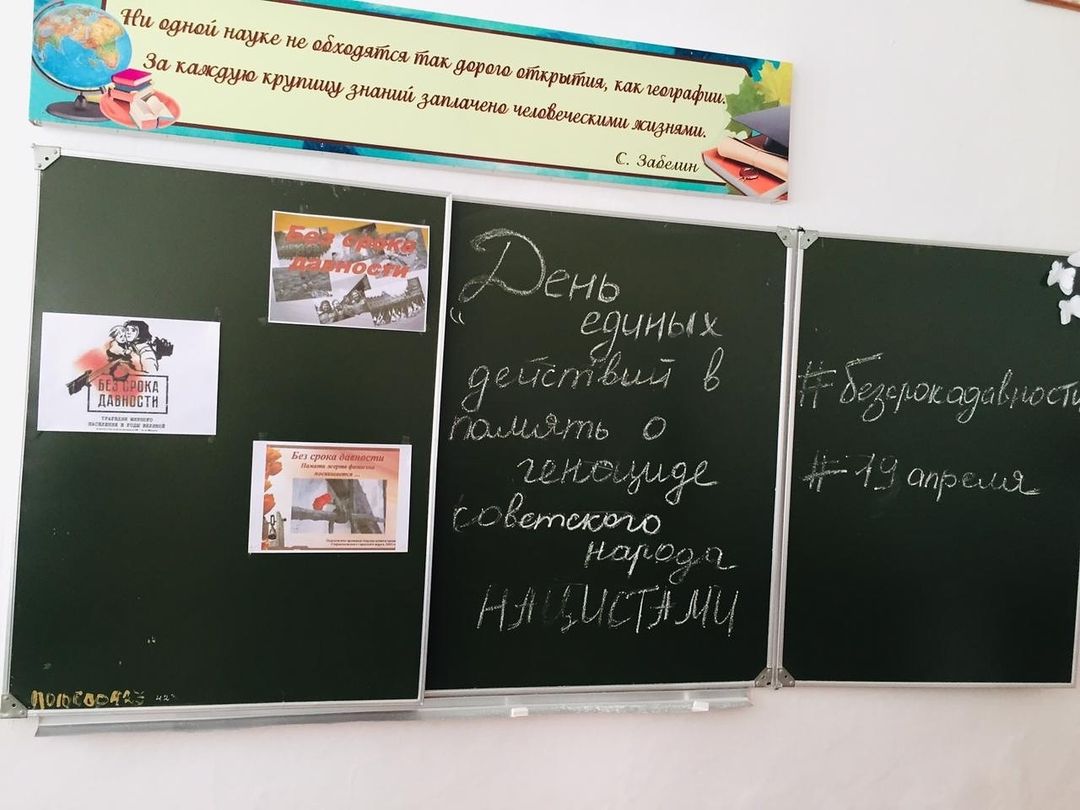 Ни одной науке не обходятся так дорого открытия, как географии.
За каждую крупицу знаний заплачено человеческими жизнями.
С. Забелин
Без срока
давности
БЕЗ СРОКА
ДАВНОСТИ
ТРАГЕДИЯ МИРНОГО
НАСЕЛЕНИЯ В ГОДЫ ВЕЛИКОЙ
Без срока давности
Памяти жертв фашизма
посвящается ...
"День
единых
действий в
память о
геноциде
советского
народа
НАЦИСТАМИ
#безсрокадавности
#19 апреля